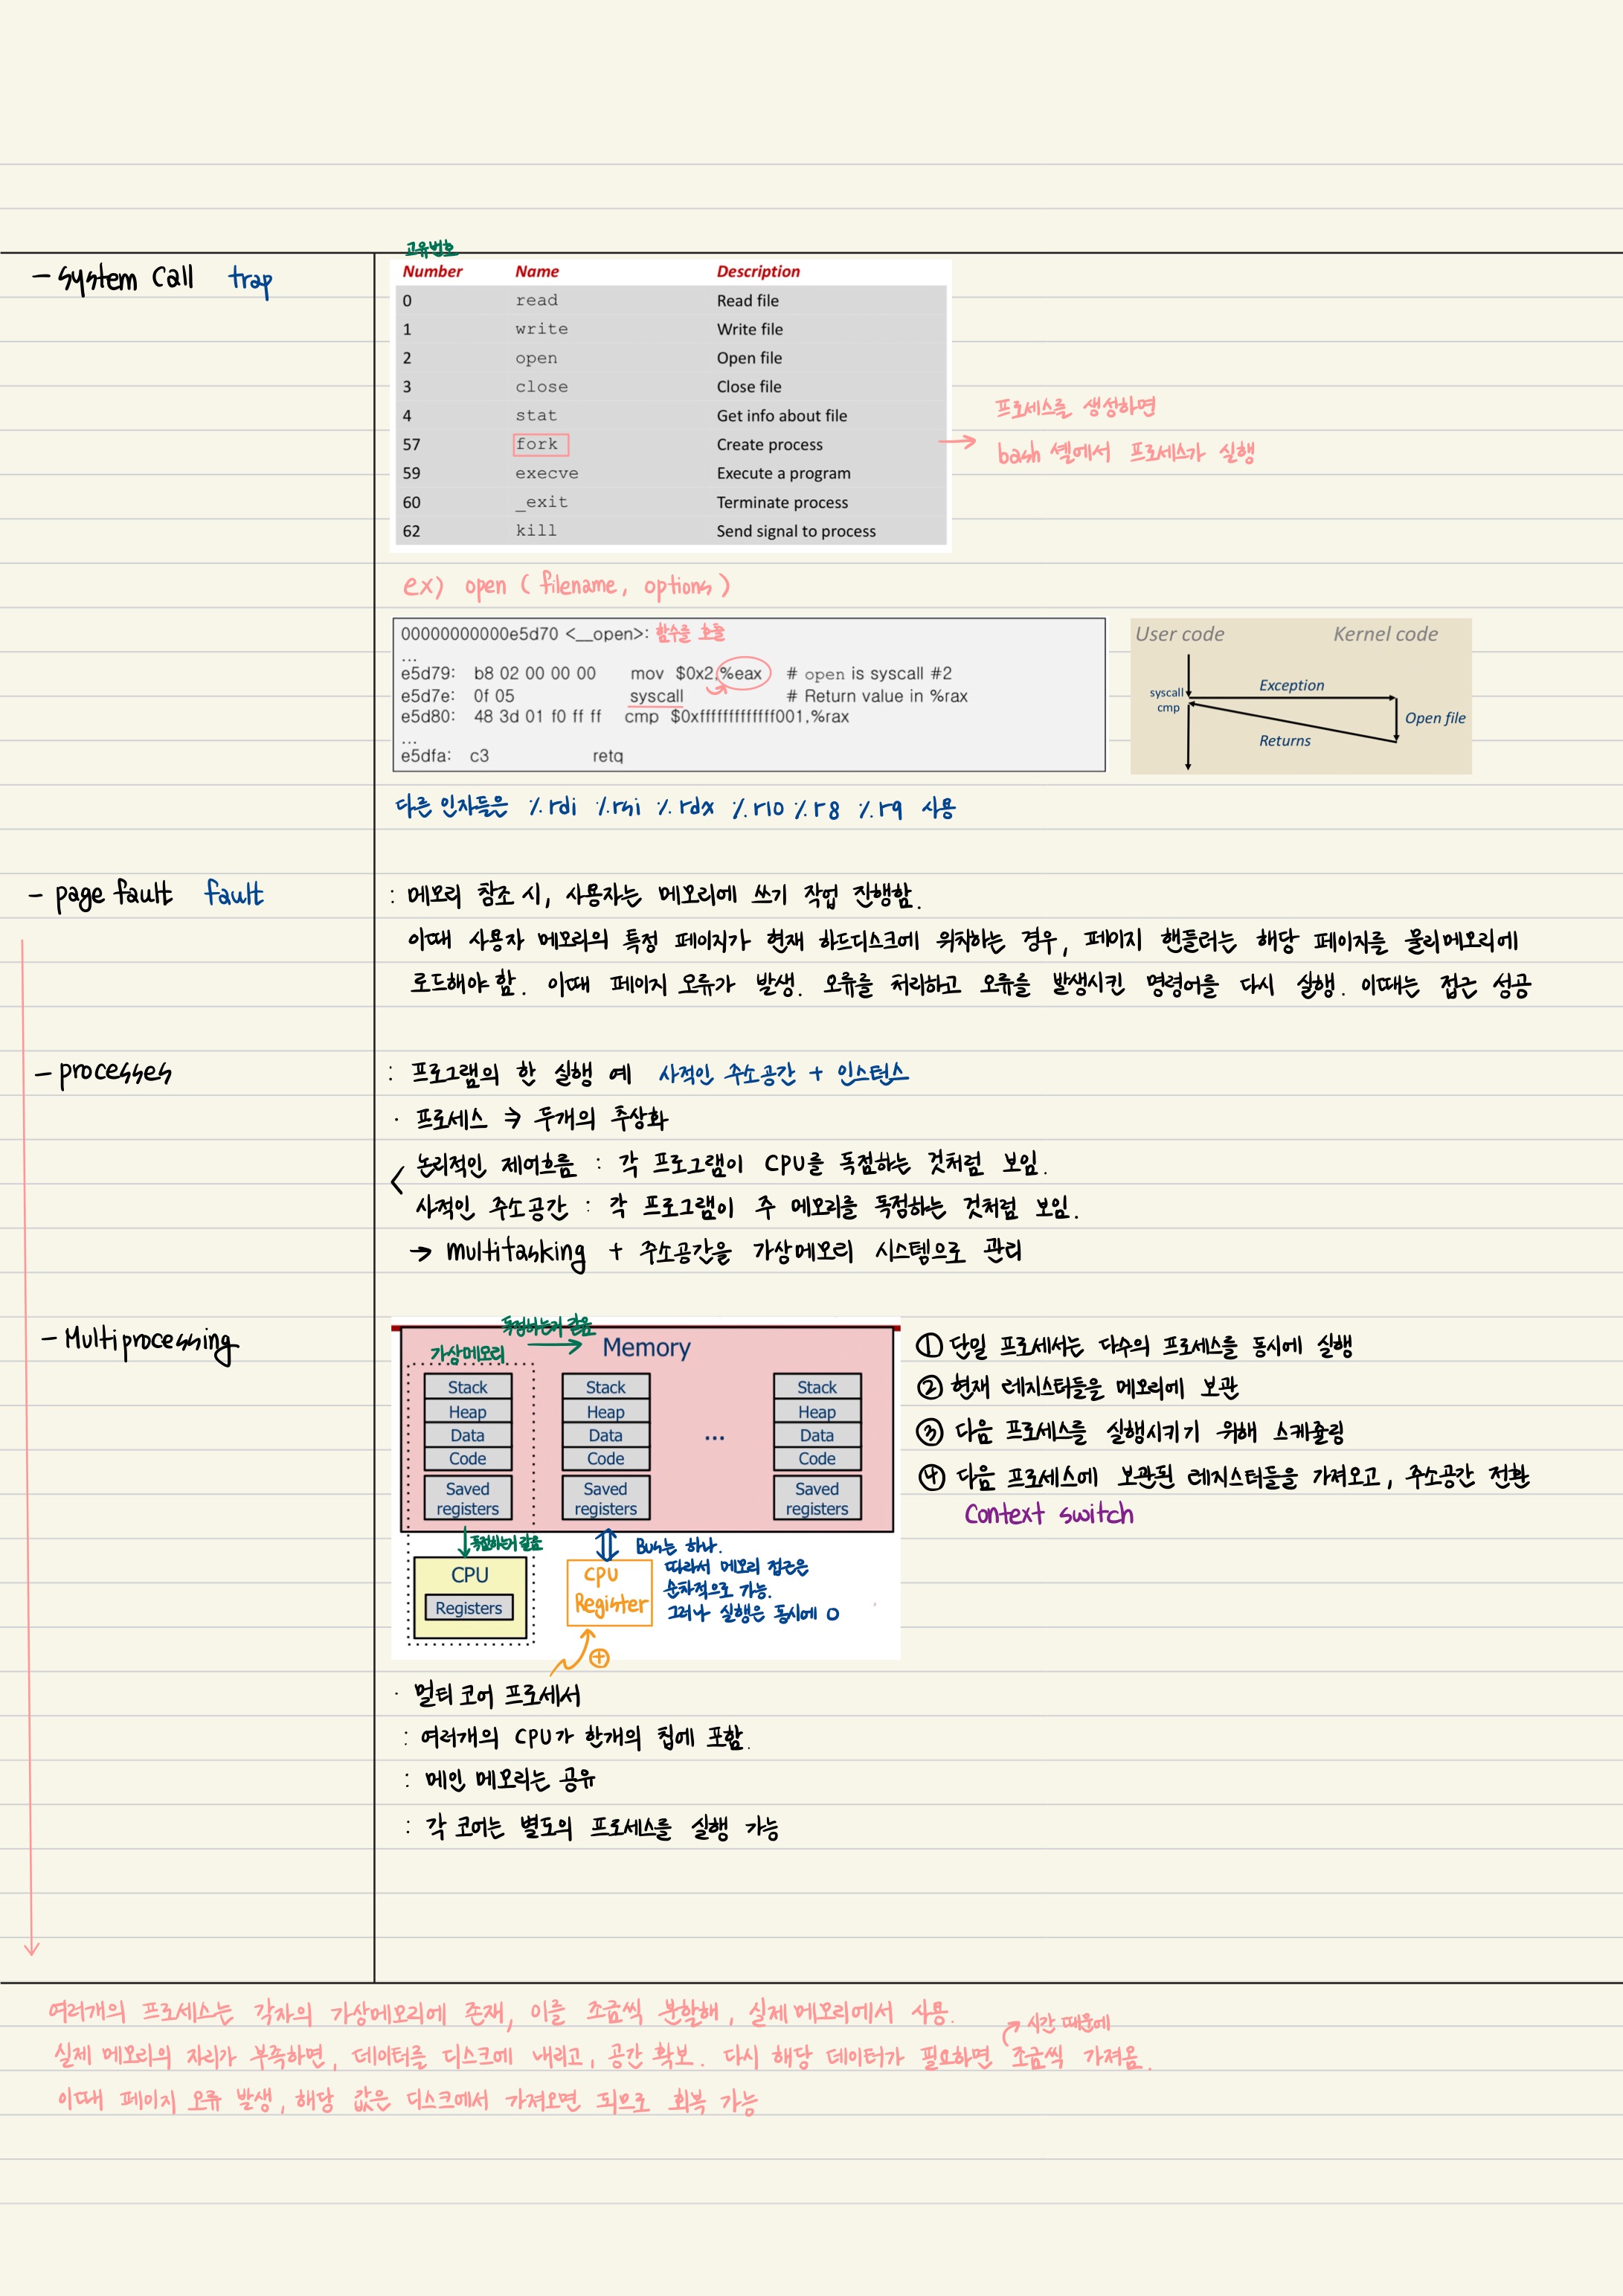 - system call trap
고유번호
Number Name Description
0 read Read file
1 write Write file
2 open Open file
3 close Close file
4 stat Get info about file
57 fork Create process
59 execve Execute a program
60 _exit Terminate process
62 kill Send signal to process
프로세스를 생성하면
bash 셸에서 프로세스가 실행
ex) open ( filename, options )
00000000000e5d70 <__open>: 함수를 호출
...
e5d79: b8 02 00 00 00 mov $0x2,%eax # open is syscall #2
e5d7e: 0f 05 syscall # Return value in %rax
e5d80: 48 3d 01 f0 ff ff cmp $0xfffffffffffff001,%rax
...
e5dfa: c3 retq
User code Kernel code
syscall
cmp
Exception
Open file
Returns
다른 인자들은 %rdi %rsi %rdx %r10 %r8 %r9 사용
- page fault fault
: 메모리 참조 시, 사용자는 메모리에 쓰기 작업 진행함.
이때 사용자 메모리의 특정 페이지가 현재 하드디스크에 위치하는 경우, 페이지 핸들러는 해당 페이지를 물리메모리에
로드해야 함. 이때 페이지 오류가 발생. 오류를 처리하고 오류를 발생시킨 명령어를 다시 실행. 이때는 접근 성공
- processes
: 프로그램의 한 실행 예 사적인 주소공간 + 인스턴스
· 프로세스 ⇒ 두개의 추상화
논리적인 제어흐름 : 각 프로그램이 CPU를 독점하는 것처럼 보임.
사적인 주소공간 : 각 프로그램이 주 메모리를 독점하는 것처럼 보임.
→ multitasking + 주소공간을 가상메모리 시스템으로 관리
- Multiprocessing
독점하는거 같음
가상메모리
Memory
Stack Stack Stack
Heap Heap Heap
Data Data ... Data
Code Code Code
Saved registers Saved registers Saved registers
독점하는거 같음
CPU
Registers
CPU
Register
Bus는 하나.
따라서 메모리 접근은
순차적으로 가능.
그러나 실행은 동시에 O
① 단일 프로세서는 다수의 프로세스를 동시에 실행
② 현재 레지스터들을 메모리에 보관
③ 다음 프로세스를 실행시키기 위해 스케쥴링
④ 다음 프로세스에 보관된 레지스터들을 가져오고, 주소공간 전환
Context switch
· 멀티 코어 프로세서
: 여러개의 CPU가 한개의 칩에 포함.
: 메인 메모리는 공유
: 각 코어는 별도의 프로세스를 실행 가능
여러개의 프로세스는 각자의 가상메모리에 존재, 이를 조금씩 분할해, 실제 메모리에서 사용.
시간 때문에
실제 메모리의 자리가 부족하면, 데이터를 디스크에 내리고, 공간 확보. 다시 해당 데이터가 필요하면 조금씩 가져옴.
이때 페이지 오류 발생, 해당 값은 디스크에서 가져오면 되므로 회복 가능